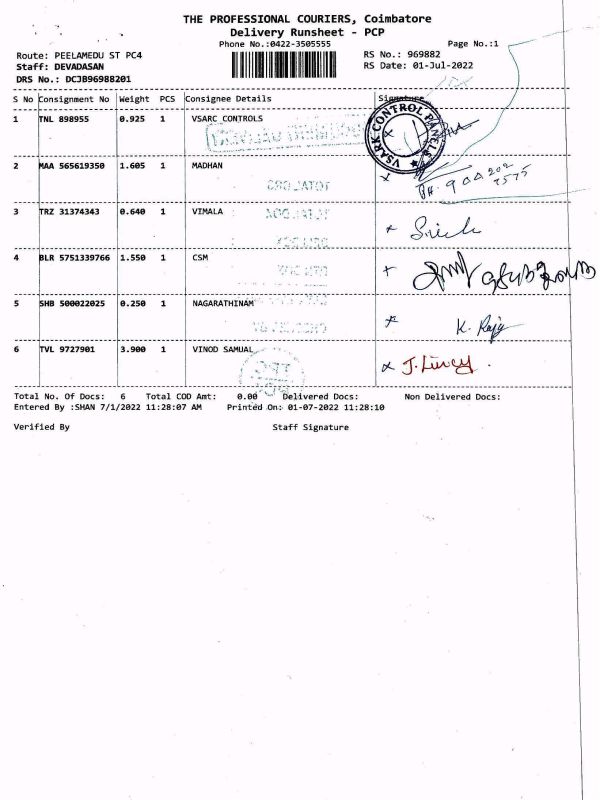 THE PROFESSIONAL COURIERS, Coimbatore
Delivery Runsheet - PCP
Phone No.:0422-3505555 Page No.:1
Route: PEELAMEDU ST PC4 RS No.: 969882
Staff: DEVADASAN RS Date: 01-Jul-2022
DRS No.: DCJB96988201
S No Consignment No Weight PCS Consignee Details Signature
1 TNL 898955 0.925 1 VSARC CONTROLS
VSARK CONTROL PANELS
2 MAA 565619350 1.605 1 MADHAN
PH. 900 202 7575
3 TRZ 31374343 0.640 1 VIMALA
4 BLR 5751339766 1.550 1 CSM
5 SHB 500022025 0.250 1 NAGARATHINAM K. Raju
6 TVL 9727901 3.900 1 VINOD SAMUAL J. Livcy.
Total No. Of Docs: 6 Total COD Amt: 0.00 Delivered Docs: Non Delivered Docs:
Entered By :SHAN 7/1/2022 11:28:07 AM Printed On: 01-07-2022 11:28:10
Verified By Staff Signature